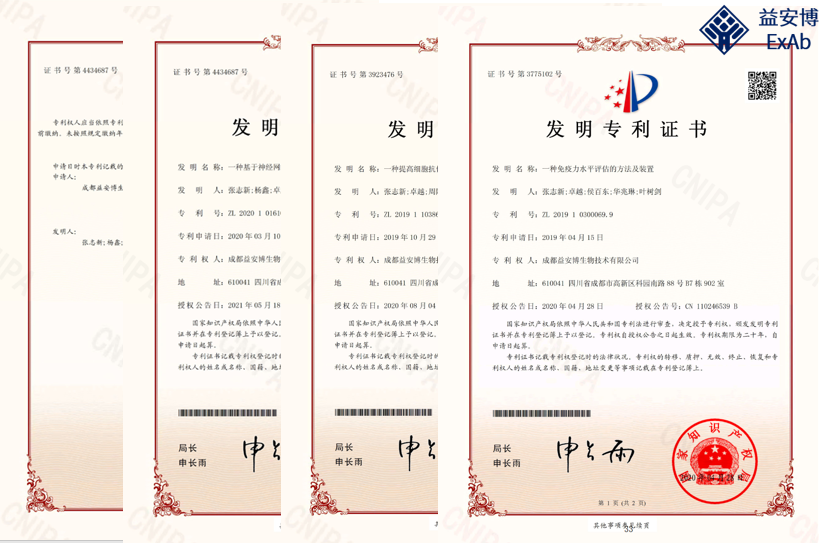 益安博
ExAb
证书号第4434687号
专利权人应当依照专利
前缴纳。未按照规定缴纳年
申请日时本专利记载的
申请人:
成都益安博生
发明人:
张志新;杨鑫;
证书号第4434687号
发明
发 明 名 称:一种基于神经网
发 明 人:张志新;杨鑫;卓
专 利 号:ZL 2020 1 0161
专利申请日:2020年03月10
专 利 权 人:成都益安博生物
地 址:610041 四川省成
授权公告日:2021年05月18
国家知识产权局依照中华人民
证书并在专利登记簿上予以登记。
申请日起算。
专利证书记载专利权登记时
利权人的姓名或名称、国籍、地
局长
申长雨
证书号第3923476号
发明
发 明 名 称:一种提高细胞抗
发 明 人:张志新;卓越;周
专 利 号:ZL 2019 1 10386
专利申请日:2019年10月29
专 利 权 人:成都益安博生物
地 址:610041 四川省成
授权公告日:2020年08月04
国家知识产权局依照中华人
证书并在专利登记簿上予以登记。
申请日起算。
专利证书记载专利权登记时的
利权人的姓名或名称、国籍、地
局长
申长雨
证书号第3775102号
发明专利证书
发 明 名 称:一种免疫力水平评估的方法及装置
发 明 人:张志新;卓越;侯百东;华兆琳;叶树剑
专 利 号:ZL 2019 1 0300069.9
专利申请日:2019年04月15日
专 利 权 人:成都益安博生物技术有限公司
地 址:610041 四川省成都市高新区科园南路88号B7栋902室
授权公告日:2020年04月28日 授权公告号:CN 110246539 B
国家知识产权局依照中华人民共和国专利法进行审查,决定授予专利权,颁发发明专利
证书并在专利登记簿上予以登记。专利权自授权公告之日起生效。专利权期限为二十年,自
申请日起算。
专利证书记载专利权登记时的法律状况。专利权的转移、质押、无效、终止、恢复和专
利权人的姓名或名称、国籍、地址变更等事项记载在专利登记簿上。
局长
申长雨
申长雨
国家知识产权局
2020年04月28日
第 1 页 (共 2 页)
其他事项参见续页
33
CNIPA